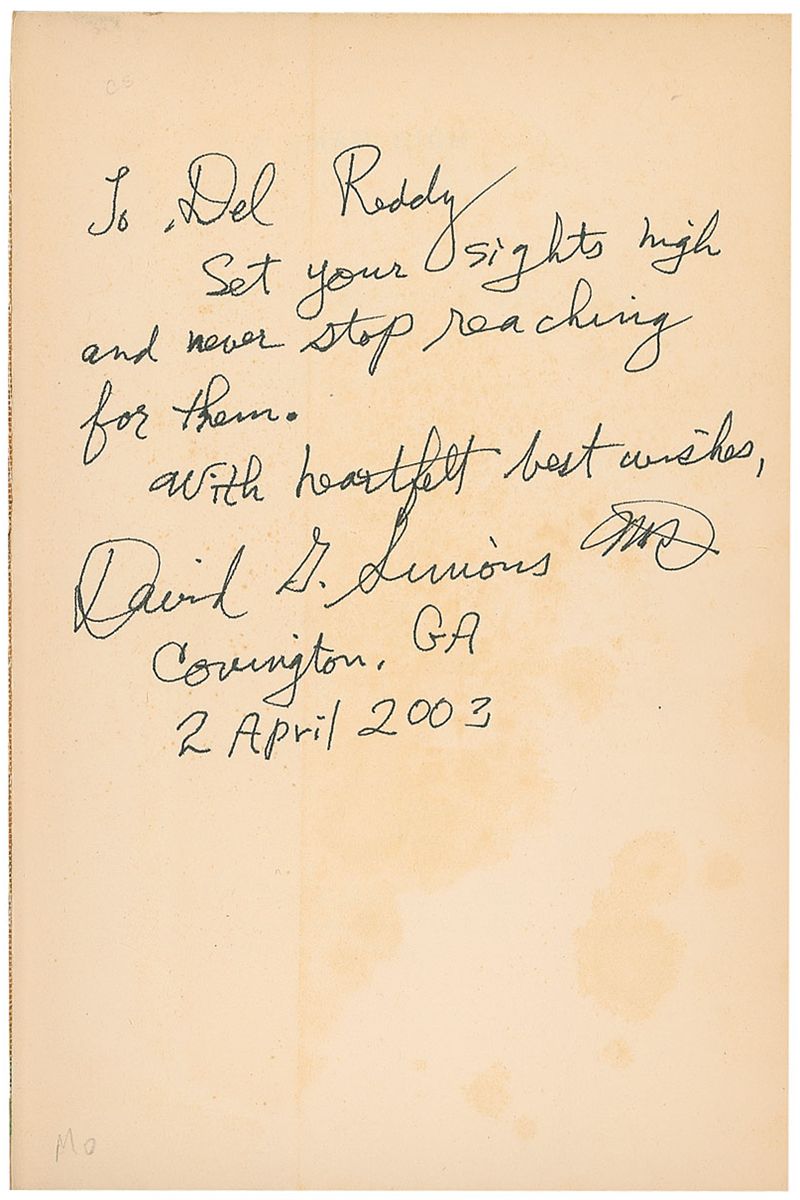 To Del Reddy
Set your sights high
and never stop reaching
for them.
With heartfelt best wishes,
David G. Simons MD
Covington, GA
2 April 2003
Mo